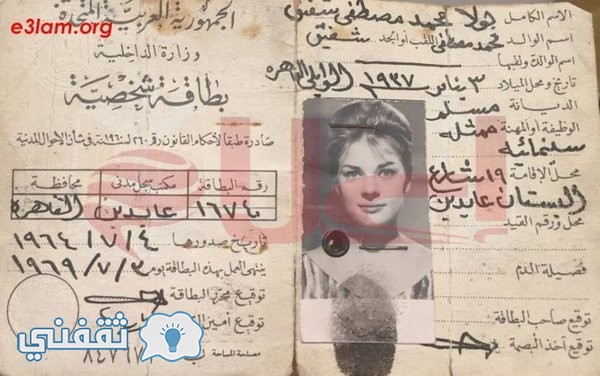 الاسم الكامل بولا محمد مصطفى شفيق
اسم الوالد محمد مصطفى للقب أو الجد شفيق
اسم الوالدة ولقبها
تاريخ ومحل الميلاد ٣ يناير ١٩٣٧ الوايلى القاهره
الديانة مسلم
الوظيفة أو المهنة ممثله
سينمائيه
محل الإقامة ١٩ شارع
البستان عابدين
محل ورقم القيد
فصيلة الدم
توقيع صاحب البطاقة:
توقيع آخذ البصمة
e3lam.org
الجمهورية العربية المتحدة
وزارة الداخلية
بطاقة شخصية
صادرة طبقا لأحكام القانون رقم ٢٦٠ لسنة ١٩٦٠ فى شأن الأحوال المدنية
رقم البطاقة مكتب سجل مدنى محافظة
١٦٧٤٠ عابدين القاهرة
تاريخ صدورها ٤ / ٧ / ١٩٦٤
ينتهى العمل بهذه البطاقة يوم ٣ / ٧ / ١٩٦٩
توقيع محرر البطاقة
توقيع أمين
مصلحة المساحة
إعلام
ثقفني